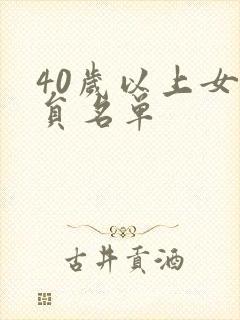 40歲以上女
員名單
古井貢酒